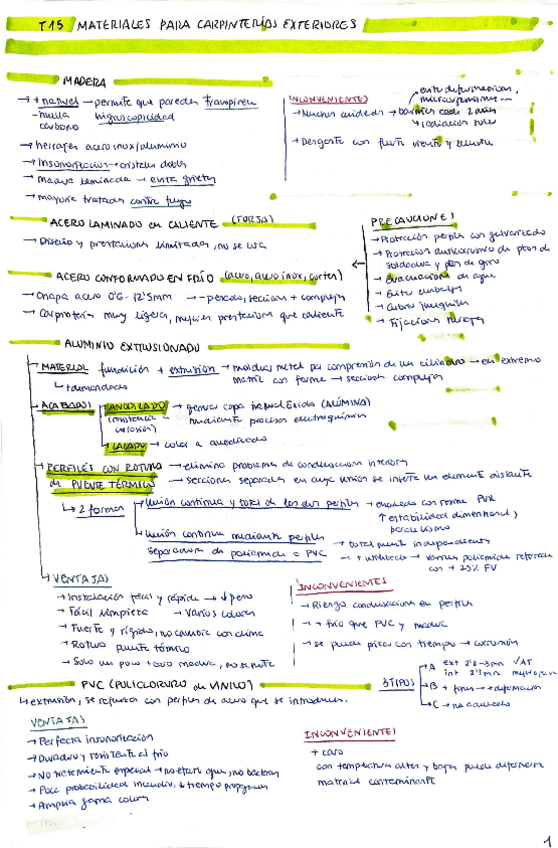 T15 MATERIALES PARA CARPINTERÍAS EXTERIORES
MADERA
→ + natural → permite que paredes transpiren
huella carbono
higroscopicidad
→ herrajes acero inox/aluminio
→ Insonorización → cristales dobles
→ Madera laminada → evita grietas
→ mayoría tratadas contra fuego
INCONVENIENTES
→ Muchos cuidados → barniz cada 2 años
→ radiación solar
→ Desgaste con fuerte viento y lluvia
ACERO LAMINADO EN CALIENTE (FORJA)
→ Diseño y prestaciones limitadas, no se usa
ACERO CONFORMADO EN FRÍO (acero, acero inox, corten)
→ Chapa acero 0'6 - 12'5mm → secciones + complejas
→ Carpintería muy ligera, mejores prestaciones que caliente
PRECAUCIONES
→ Protección perfiles con galvanizado
→ Protección anticorrosiva de ptos de soldadura y ptos de giro
→ evacuaciones de agua
→ Cubrir junquillos
→ Fijaciones
ALUMINIO EXTRUSIONADO
MATERIAL fundición + extrusión → moldear metal por compresión de un cilindro → en extremo
matriz con forma → secciones complejas
ACABADOS
ANODIZADO → genera capa óxido (ALÚMINA)
mediante proceso electroquímico
LACADO → color a
PERFILES CON ROTURA DE PUENTE TÉRMICO → elimina problema de condensación interior
→ secciones separadas en cuya unión se inserta un elemento aislante
→ 2 formas
Unión continua y total de los dos perfiles
↑ estabilidad dimensional,
Unión continua mediante perfiles separadores de poliamida o PVC → totalmente independientes
→ + utilizado → varillas poliamida reforzada con + 25% FV
VENTAJAS
→ Instalación fácil y rápida → ↓ peso
→ Fácil limpieza → Varios colores
→ Fuerte y rígido, no cambia con clima
→ Rotura puente térmico
→ Solo un poco + caro madera,
INCONVENIENTES
→ Riesgo condensaciones en perfiles
→ + frío que PVC y madera
→ se puede picar con tiempo → corrosión
PVC (POLICLORURO de VINILO)
→ extrusión, se refuerza con perfiles de acero que se introducen.
3 TIPOS
A ext 2'8-3mm
int 2'5mm
B + finos → + deformación
C → no adecuado
VENTAJAS
→ Perfecta insonorización
→ Duradero y resistente al frío
→ No tratamiento especial
→ Poca probabilidad incendio, ↓ tiempo propagación
→ Amplia gama colores
INCONVENIENTES
+ caro
con temperaturas altas y bajas puede deformarse
material contaminante
1